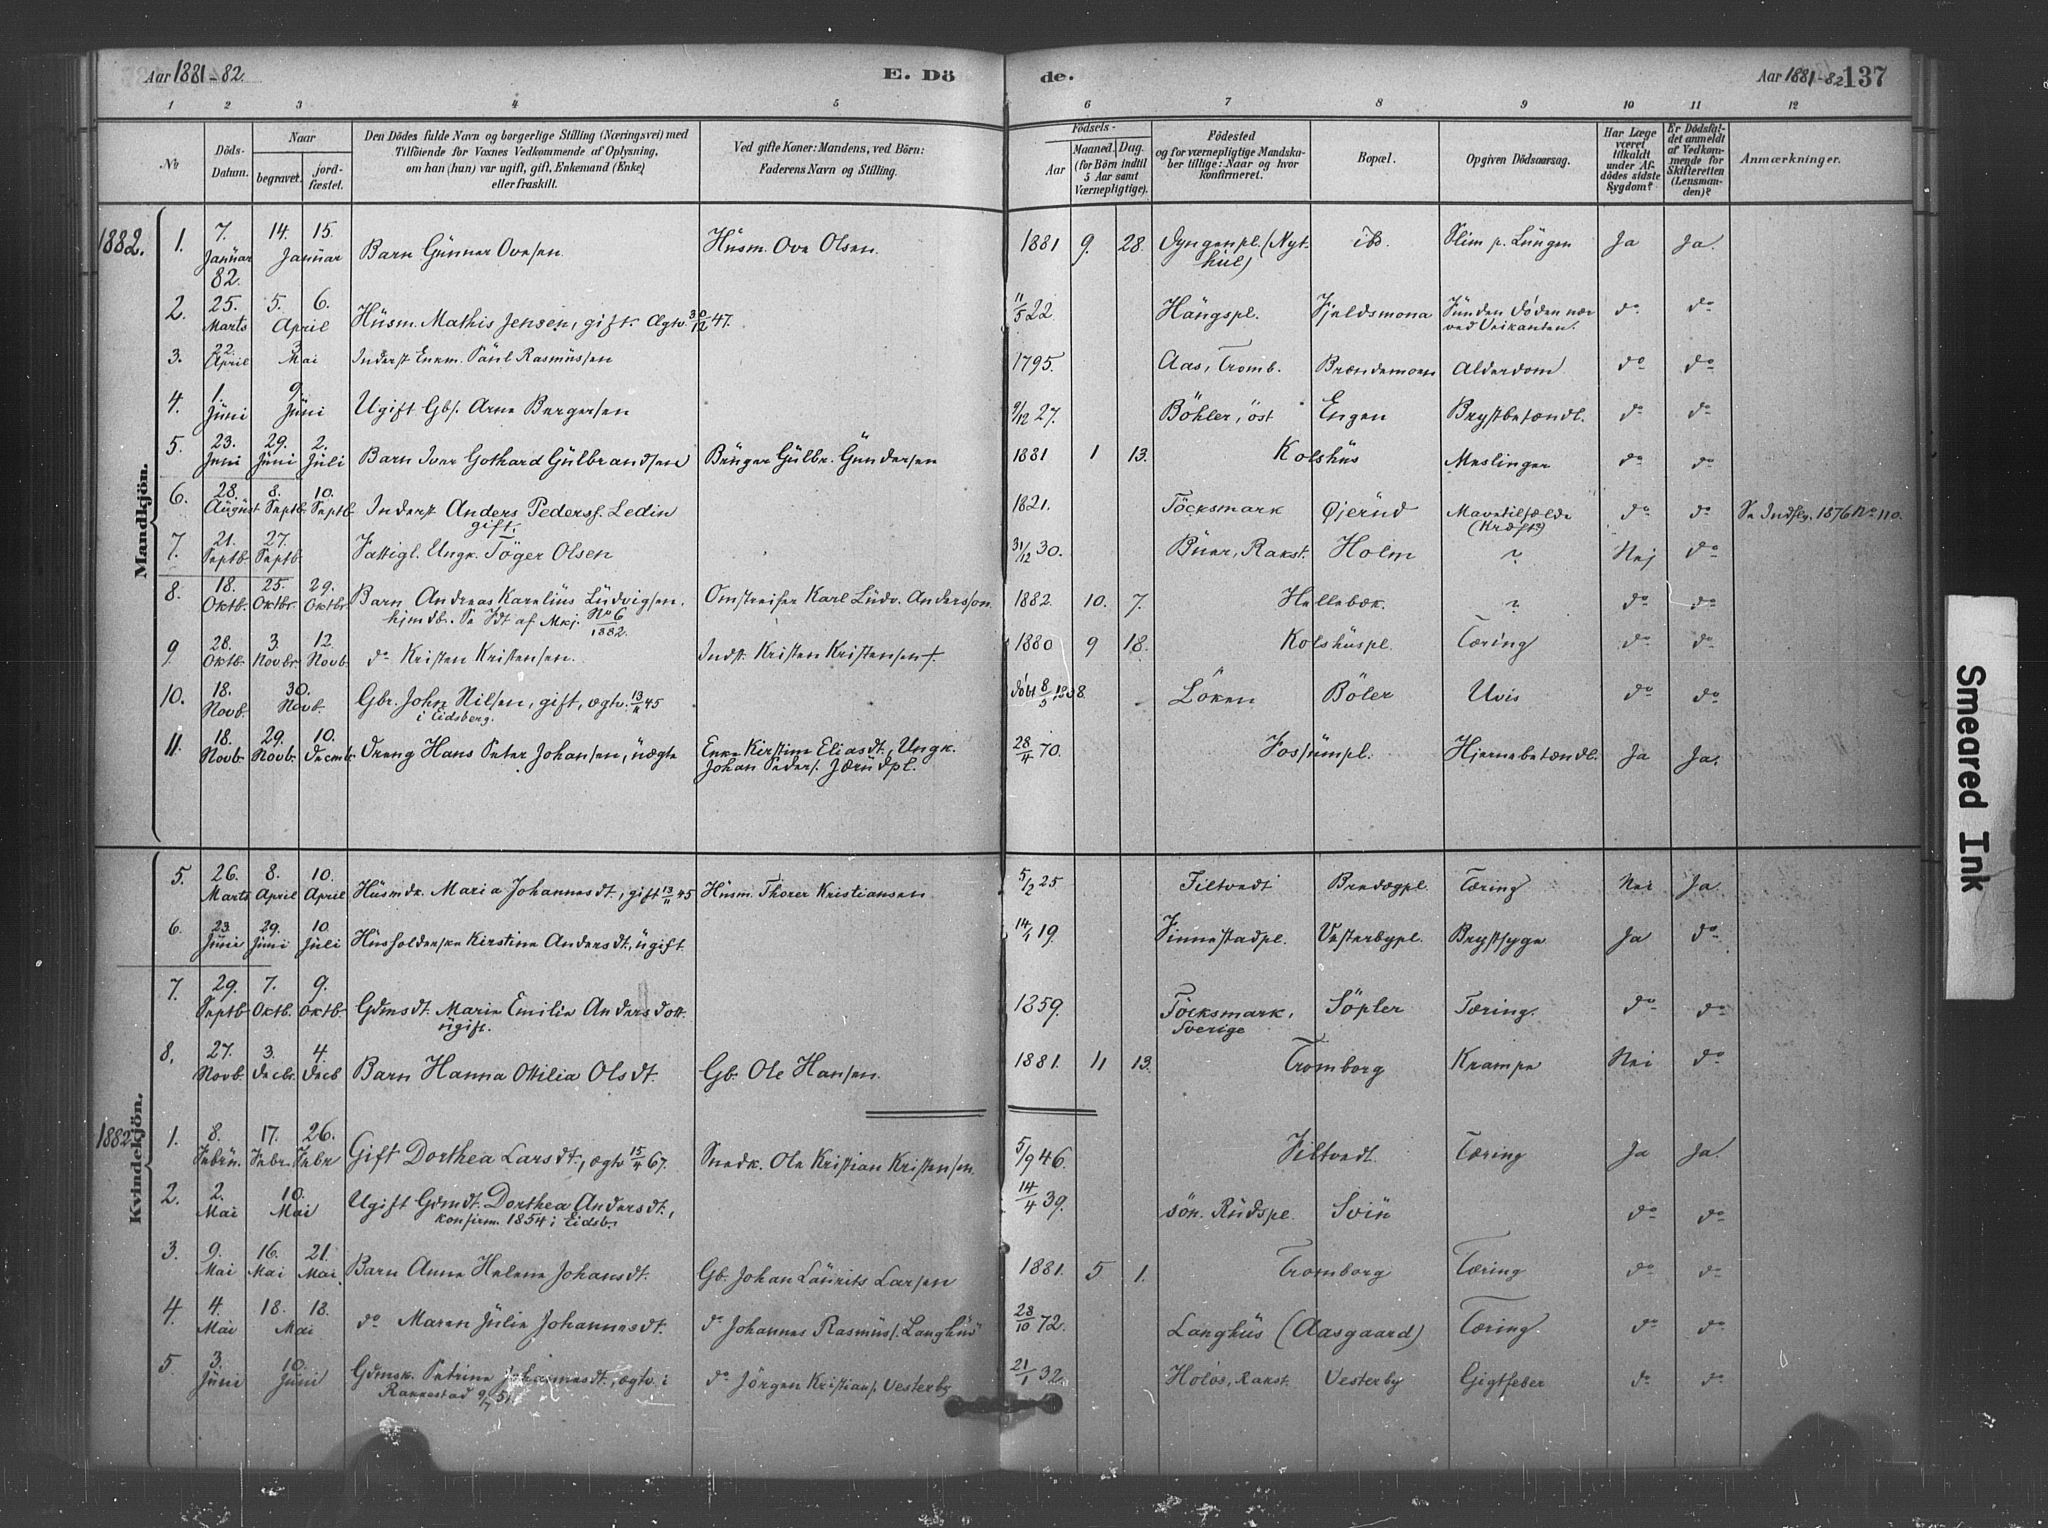 Aar 1881-82. E. Dö de. Aar 1881-82 137
1 2 3 4 5 6 7 8 9 10 11 12
No
Döds-Datum.
Naar
begravet.
jord-fæstet.
Den Dödes fulde Navn og borgerlige Stilling (Næringsvei) med
Tilföiende for Voxnes Vedkommende af Oplysning,
om han (hun) var ugift, gift, Enkemand (Enke)
eller fraskilt.
Ved gifte Koner: Mandens, ved Börn:
Faderens Navn og Stilling.
Födsels-
Aar
Maaned. Dag.
(for Börn indtil
5 Aar samt
Værnepligtige).
Födested
og for værnepligtige Mandska-
ber tillige: Naar og hvor
konfirmeret.
Bopæl.
Opgiven Dödsaarsag.
Har Læge
været
tilkaldt
under Af-
dödes sidste
Sygdom?
Er Dödsfal-
det anmeldt
af Vedkom-
mende for
Skifteretten
(Lensman-
den)?
Anmærkninger.
Mandkjön.
1882. 1. 7. Januar 82. 14. 15. Januar Barn Gunner Ovesen. Husm. Ove Olsen. 1881 9. 28. Dyngenpl. (Nyt-
hul) ibd. Slim p. Lungen Ja Ja.
2. 25. Marts 5. 6. April Husm. Mathis Jensen, gift. Ægtv. 30/12 47. 11/5 22. Hängspl. Fjeldsmona Funden döden nær
ved Veikanten. do do
3. 22. April 3. Mai Inderst Enkm. Paul Rasmussen 1795. Aas, Tromb. Brændemoen Alderdom do do
4. 1. Juni 9. Juni Ugift Gbs. Arne Bergersen 9/12 27. Böhler, öst Engen Brystbetændl. do do
5. 23. Juni 29. Juni 2. Juli Barn Iver Gothard Gulbrandsen Bruger Gulbr. Gundersen 1881 1 13. Kolshus Meslinger do do
6. 28. August 8. Septb. 10. Septb. Inderst Anders Peders. Ledin
gift. 1821. Töcksmark Øjerud Mavetilfælde
(Kræft?) do do Se Indfly. 1876 No 110.
7. 21. Septb. 27. Septb. Fattigl. Ungk. Töger Olsen 31/12 30. Buer, Rakst. Holm ? Nej do
8. 18. Oktb. 25. Oktbr. 29. Oktbr. Barn Andreas Karelius Ludvigsen.
hjmdb. Se Fdt af Mkj. No 6
1882. Omstreifer Karl Ludv. Andersson. 1882. 10. 7. Hellebæk. ? do do
9. 28. Oktb. 3. Novbr. 12. Novb. do Kristen Kristensen. Indst. Kristen Kristensen †. 1880 9 18. Kolshuspl. Tæring do do
10. 18. Novb. 30. Novb. Gbr. John Nilsen, gift, ægtv. 13/11 45
i Eidsberg. döbt 8/5 1808. Löken Böler Uvis do do
11. 18. Novb. 29. Novb. 10. Decmb. Dreng Hans Peter Johansen, uægte Enke Kirstine Eliasdt., Ungk.
Johan Peders. Jærudpl. 28/4 70. Fossumpl. Hjernebetændl. Ja Ja.
Kvindekjön.
5. 26. Marts 8. April 10. April Husmdk. Maria Johannesdt., gift 13/11 45 Husm. Thorer Kristiansen 5/2 25 Filtvedt Bredægpl. Tæring Nei Ja
6. 23. Juni 29. Juni 10. Juli Husholderske Kirstine Andersdt., ugift. 14/1 19. Finnestadpl. Vesterbypl. Brystsyge Ja do
7. 29. Septb 7. Oktb. 9. Oktbr. Gdmsdt. Marie Emilie Andersdott.
ugift. 1859. Töcksmark,
Sverige Söpler Tæring. do do
8. 27. Novb. 3. Decbr. 4. Decb Barn Hanna Otilia Olsdt. Gb. Ole Hansen. 1881. 11 13. Tromborg Krampe Nei do
1882 1. 8. Febru. 17. Febr. 26. Febr Gift Dorthea Larsdt., ægtv 15/4 67. Snedk. Ole Kristian Kristensen. 5/9 46. Filtvedt. Tæring Ja Ja.
2. 2. Mai 10. Mai Ugift Gdmdt. Dorthea Andersdt.,
konfirm. 1854 i Eidsb. 14/4 39. sön. Rudspl. Sviu do do
3. 9. Mai 16. Mai 21. Mai. Barn Anne Helene Johansdt. Gb. Johan Laurits Larsen 1881. 5 1. Tromborg Tæring do do
4. 4. Mai 18. 18. Mai do Maren Julie Johannesdt. do Johannes Rasmus. Langhus 28/10 72. Langhus (Aasgaard) Tæring do do
5. 3. Juni 10. Juni Gdmsk. Petrine Johannesdt., ægtv. i
Rakkestad 9/7 51. do Jörgen Kristians. Vesterby 21/1 32. Holös, Rakst. Vesterby Gigtfeber do do
Smeared Ink